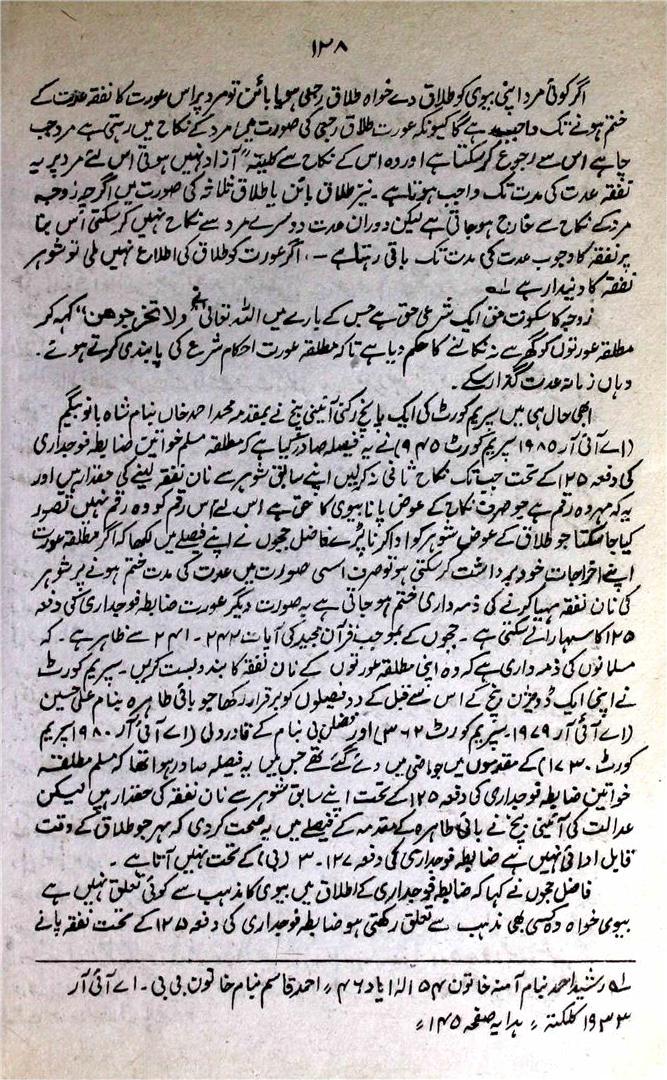 ۱۳۸
اگر کوئی مرد اپنی بیوی کو طلاق دے خواہ طلاق رجعی ہو یا بائن تو مرد پر اس عورت کا نفقہ عدت کے
ختم ہونے تک واجب ہے گا کیونکہ عورت طلاق رجعی کی صورت میں مرد کے نکاح میں رہتی ہے مرد جب
چاہے اس سے رجوع کر سکتا ہے اور وہ اس کے نکاح سے کلیتہً آزاد نہیں ہوتی اس لئے مرد پر یہ
نفقہ عدت کی مدت تک واجب ہوتا ہے۔ نیز طلاق بائن یا طلاق ثلاثہ کی صورت میں اگرچہ زوجہ
مرد کے نکاح سے خارج ہو جاتی ہے لیکن دوران عدت دوسرے مرد سے نکاح نہیں کر سکتی اس بنا
پر نفقہ کا وجوب عدت کی مدت تک باقی رہتا ہے۔ اگر عورت کو طلاق کی اطلاع نہیں ملی تو شوہر
نفقہ کا دیندار ہے ؎۱
زوجہ کا سکونت حق ایک شرعی حق ہے جس کے بارے میں اللہ تعالیٰ "ولا تخرجوھن" کہہ کر
مطلقہ عورتوں کو گھر سے نہ نکالنے کا حکم دیا ہے تاکہ مطلقہ عورت احکام شرع کی پابندی کرتے ہوئے۔
وہاں زمانہ عدت گذار سکے۔
ابھی حال ہی میں سپریم کورٹ کی ایک پانچ رکنی آئینی بنچ نے بمقدمہ محمد احمد خاں بنام شاہ بانو بیگم
(اے آئی آر ۱۹۸۵ سپریم کورٹ ۹۴۵) نے یہ فیصلہ صادر کیا ہے کہ مطلقہ مسلم خواتین ضابطہ فوجداری
کی دفعہ ۱۲۵ کے تحت جب تک نکاح ثانی نہ کر لیں اپنے سابق شوہر سے نان نفقہ لینے کی حقدار ہیں اور
یہ کہ مہر وہ رقم ہے جو صرف نکاح کے عوض پانا بیوی کا حق ہے اس لئے اس رقم کو وہ رقم نہیں تصور
کیا جا سکتا جو طلاق کے عوض شوہر کو ادا کرنا پڑے فاضل ججوں نے اپنے فیصلے میں لکھا کہ اگر مطلقہ عورت
اپنے اخراجات خود برداشت کر سکتی ہو تو صرف اسی صورت میں عدت کی مدت ختم ہونے پر شوہر
کی نان نفقہ مہیا کرنے کی ذمہ داری ختم ہو جاتی ہے بہ صورت دیگر عورت ضابطہ فوجداری کی دفعہ
۱۲۵ کا سہارا لے سکتی ہے۔ ججوں کے بموجب قرآن مجید کی آیات ۲۴۲۔ ۲۴۱ سے ظاہر ہے۔ کہ
مسلمانوں کی ذمہ داری ہے کہ وہ اپنی مطلقہ عورتوں کے نان نفقہ کا بندوبست کریں۔ سپریم کورٹ
نے اپنی ایک ڈویژن بنچ کے اس سے قبل کے دو فیصلوں کو برقرار رکھا جو بائی طاہرہ بنام علی حسین
(اے آئی آر ۱۹۷۹ سپریم کورٹ ۳۶۲) اور فضل بی بنام کے قادر ولی (اے آئی آر ۱۹۸۰ سپریم
کورٹ ۱۷۳۰) کے مقدموں میں جو ماضی میں دئے گئے تھے جس میں یہ فیصلہ صادر ہوا تھا کہ مسلم مطلقہ
خواتین ضابطہ فوجداری کی دفعہ ۱۲۵ کے تحت اپنے سابق شوہر سے نان نفقہ کی حقدار ہیں لیکن
عدالت کی آئینی بنچ نے بائی طاہرہ کے مقدمہ کے فیصلے میں یہ صحت کر دی کہ مہر جو طلاق کے وقت
قابل ادائی نہیں ہے ضابطہ فوجداری کی دفعہ ۱۲۷۔ ۳ (بی) کے تحت نہیں آتا ہے۔
فاضل ججوں نے کہا کہ ضابطہ فوجداری کے اطلاق میں بیوی کا مذہب سے کوئی تعلق نہیں ہے
بیوی خواہ وہ کسی بھی مذہب سے تعلق رکھتی ہو ضابطہ فوجداری کی دفعہ ۱۲۵ کے تحت نفقہ پانے
؎۱ رشید احمد بنام آمنہ خاتون ۵۴ الہ آباد ۴۶، احمد قاسم بنام خاتون بی بی۔ اے آئی آر
۱۹۳۳ کلکتہ، ہدایہ صفحہ ۱۴۵،